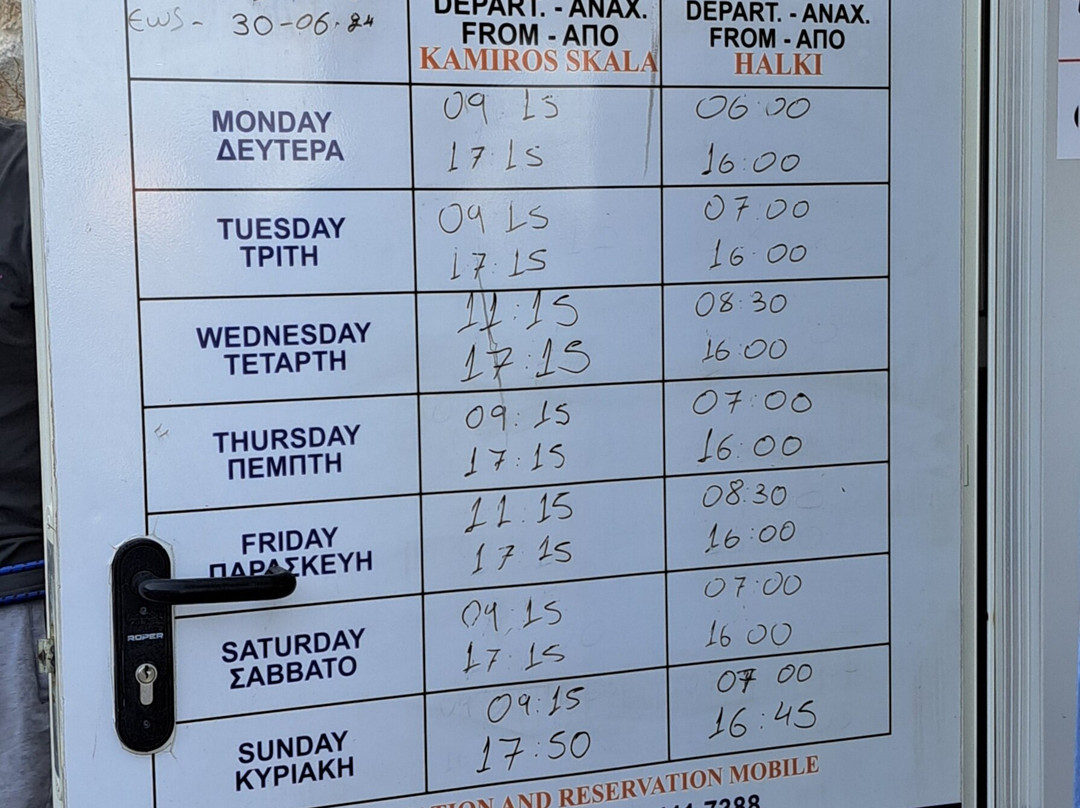 εως - 30-06.24
DEPART. - ΑΝΑΧ.
FROM - ΑΠΟ
KAMIROS SKALA
DEPART. - ΑΝΑΧ.
FROM - ΑΠΟ
HALKI
MONDAY
ΔΕΥΤΕΡΑ
09:15
17:15
06:00
16:00
TUESDAY
ΤΡΙΤΗ
09 15
17:15
07:00
16:00
WEDNESDAY
ΤΕΤΑΡΤΗ
11:15
17:15
08:30
16:00
THURSDAY
ΠΕΜΠΤΗ
09:15
17:15
07:00
16:00
FRIDAY
ΠΑΡΑΣΚΕΥΗ
11:15
17 15
08:30
16:00
SATURDAY
ΣΑΒΒΑΤΟ
09:15
17:15
07:00
16 00
SUNDAY
ΚΥΡΙΑΚΗ
09:15
17:50
07 00
16:45
AND RESERVATION MOBILE
7388
ROPER